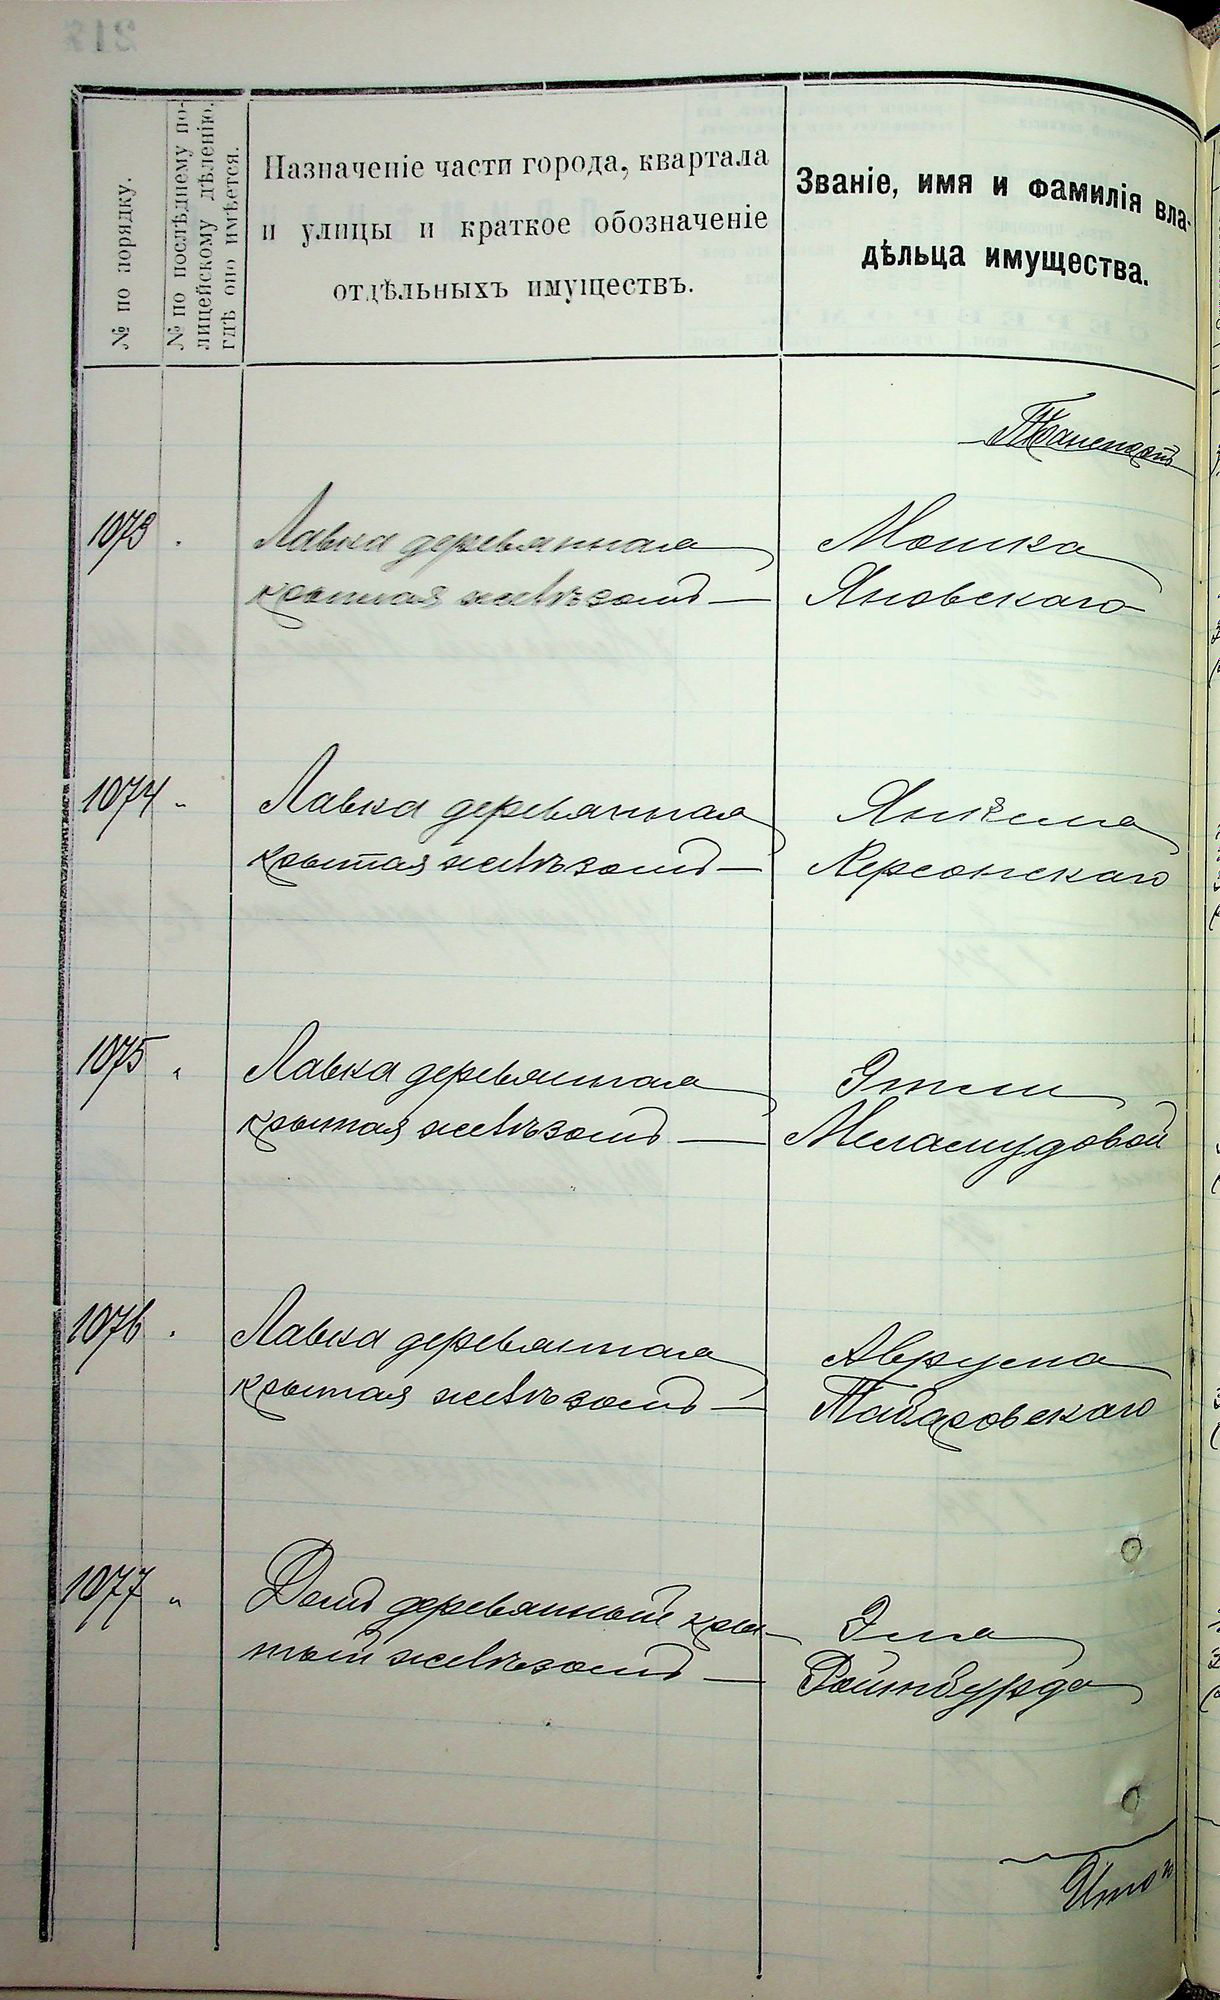 № по порядку.
№ по послѣднему по-
лицейскому дѣленію,
гдѣ оно имѣется.
Назначеніе части города, квартала
и улицы и краткое обозначеніе
отдѣльныхъ имуществъ.
Званіе, имя и фамилія вла-
дѣльца имущества.
Транспортъ
1073 "
Лавка деревянная
крытая желѣзомъ —
Мошка
Яновскаго
1074 "
Лавка деревянная
крытая желѣзомъ —
Янкеля
Херсонскаго
1075 "
Лавка деревянная
крытая желѣзомъ —
Этли
Меламудовой
1076 "
Лавка деревянная
крытая желѣзомъ —
Аврума
1077 "
Домъ деревянный кры-
тый желѣзомъ —
Эля
Ройнбурда
Итого